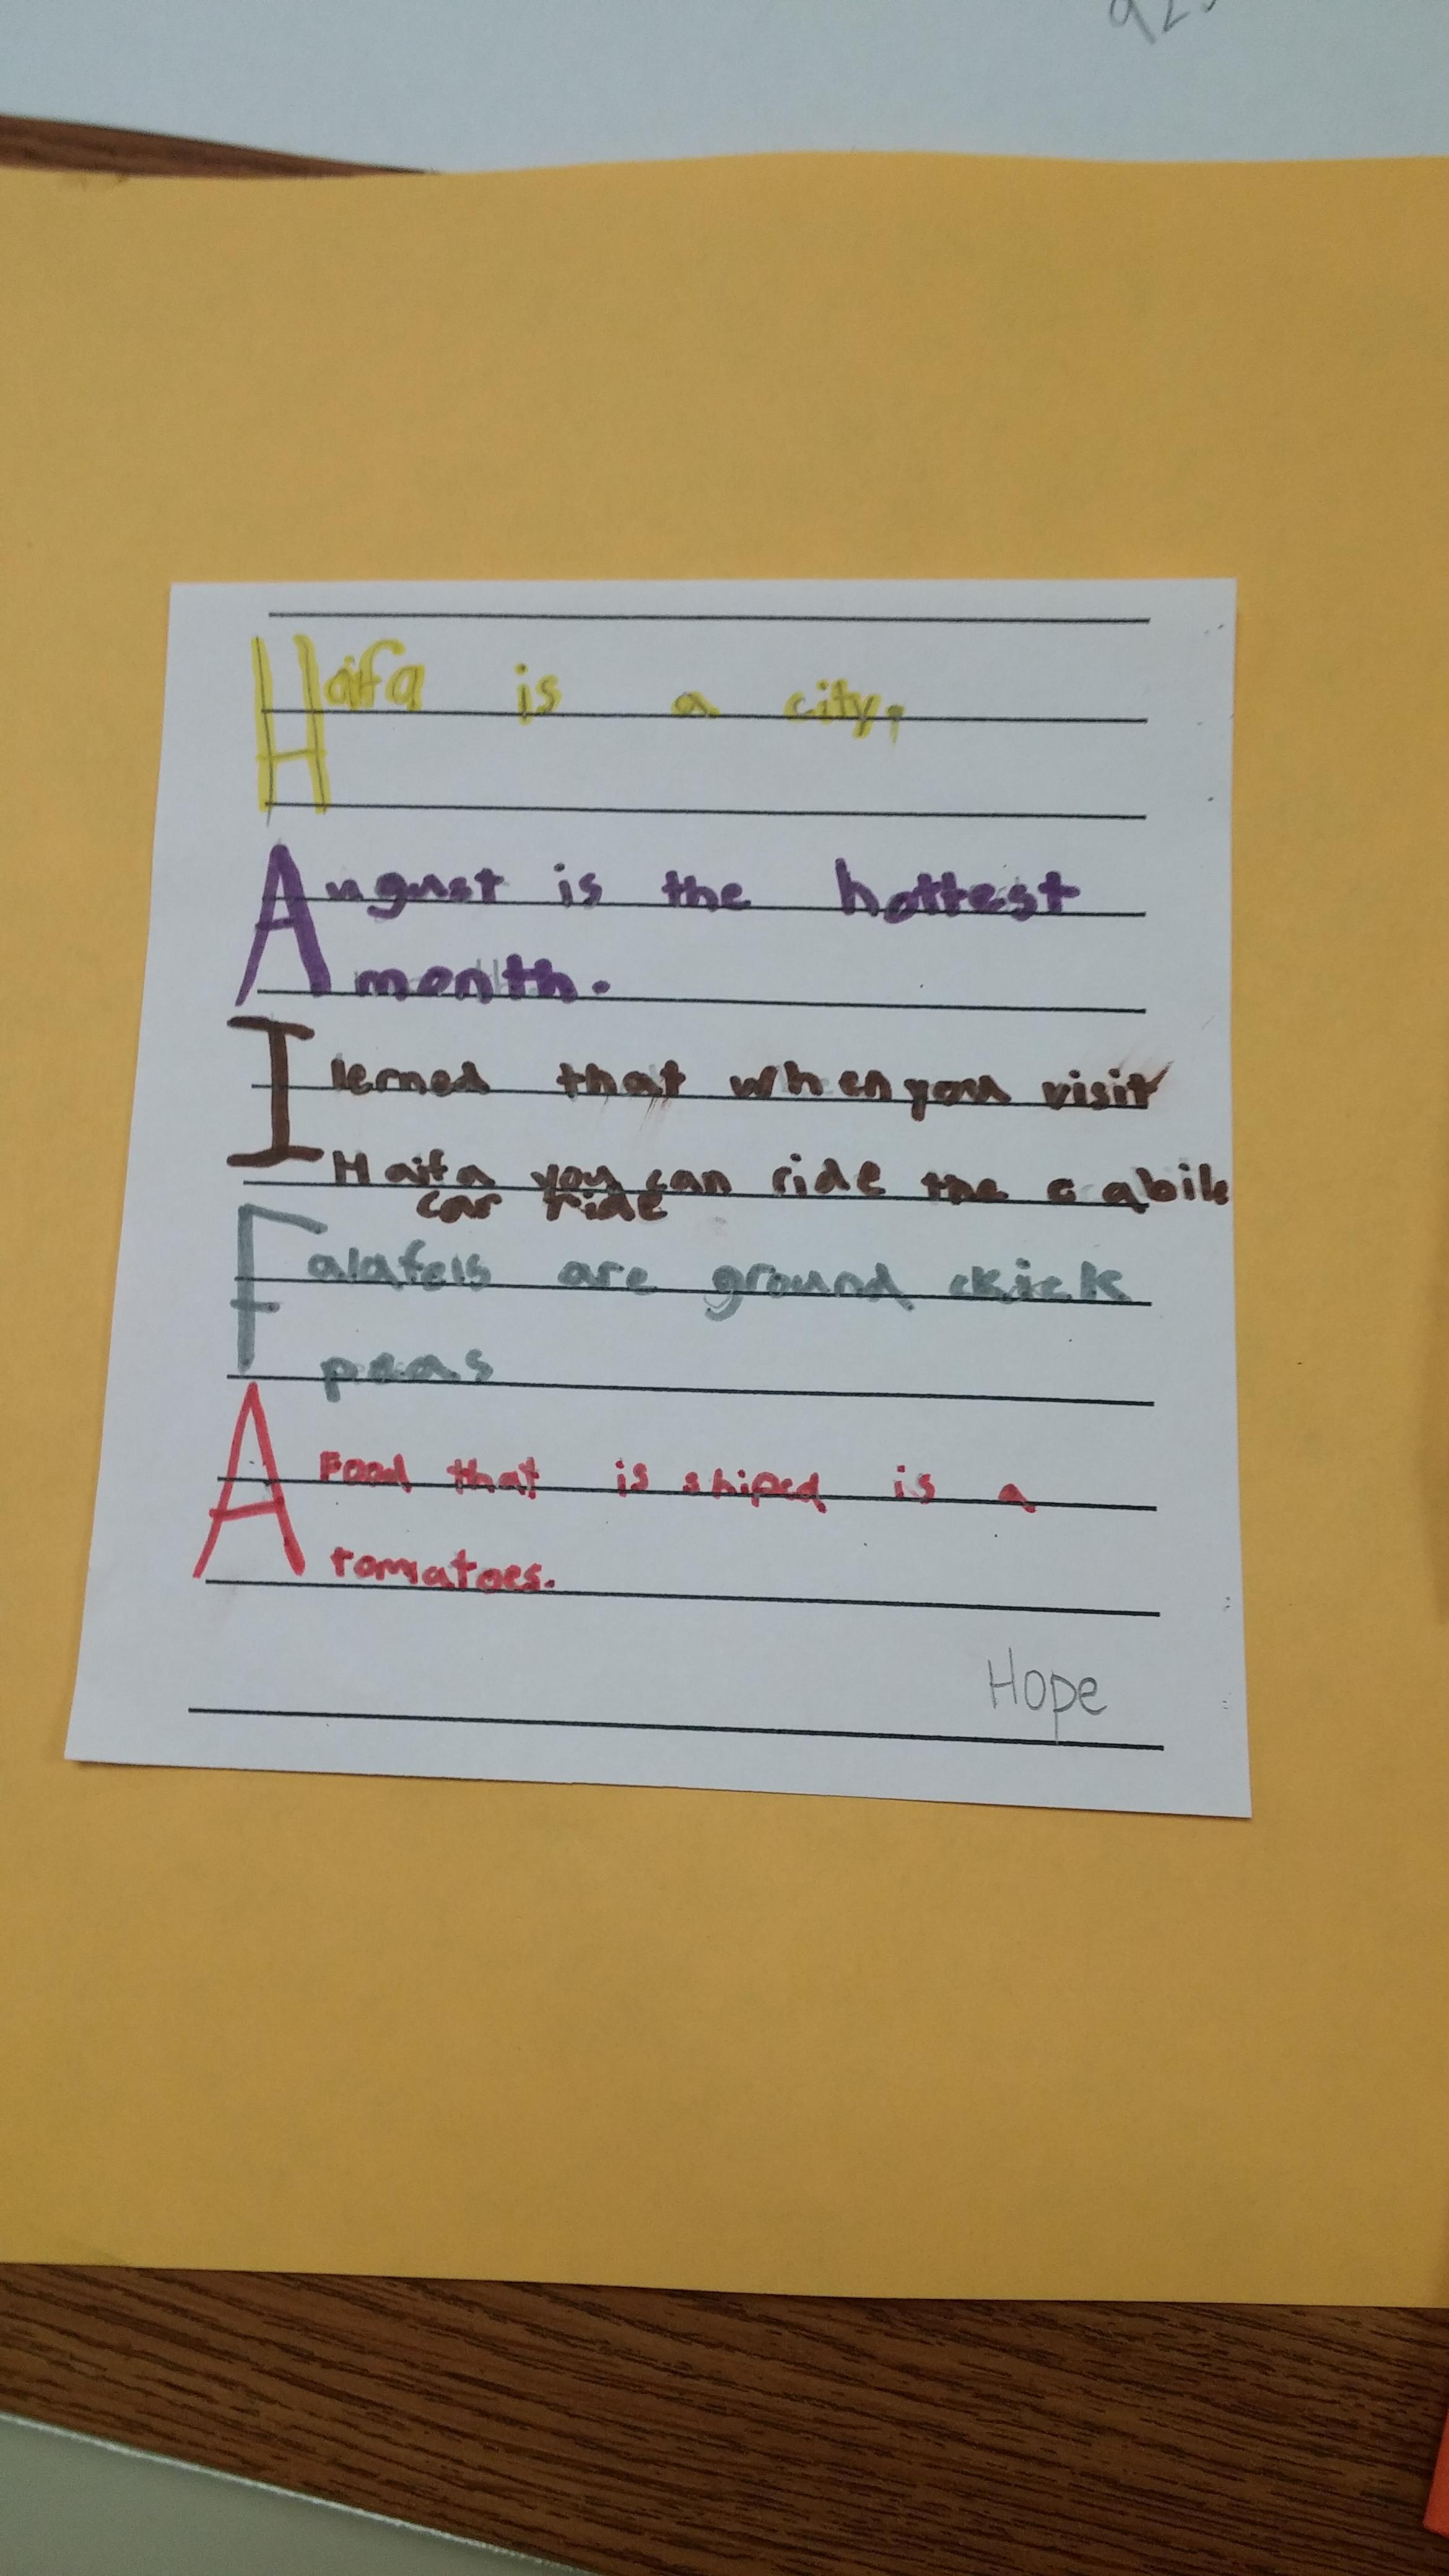 Haifa is a city,
August is the hottest
month.
I lerned that when you visit
Haifa you can ride the cabile
car ride
Falafels are ground chick
peas
A Food that is shiped is a
tomatoes.
Hope